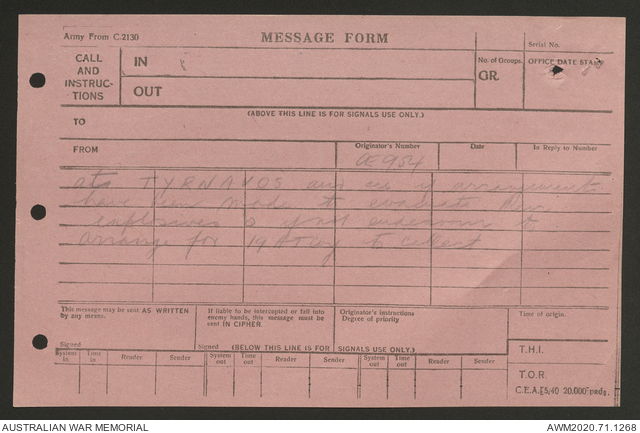 Army From C.2130
MESSAGE FORM
Serial No.
CALL AND INSTRUC- TIONS
IN
OUT
No. of Groups.
GR.
OFFICE DATE STAMP
(ABOVE THIS LINE IS FOR SIGNALS USE ONLY.)
TO
FROM
Originator's Number
Date
In Reply to Number
OE954
TYRNAVOS and see if arrangements
have been made to evacuate
explosives & if not endeavour to
arrange for 19 to collect
This message may be sent AS WRITTEN
by any means.
If liable to be intercepted or fall into
enemy hands, this message must be
sent IN CIPHER.
Originator's instructions
Degree of priority
Time of origin.
Signed
Signed
(BELOW THIS LINE IS FOR SIGNALS USE ONLY.)
T.H.I.
System in
Time in
Reader
Sender
System out
Time out
Reader
Sender
System out
Time out
Reader
Sender
T.O.R.
C.E.A.[5/40 20,000 pads.
AUSTRALIAN WAR MEMORIAL
AWM2020.71.1268